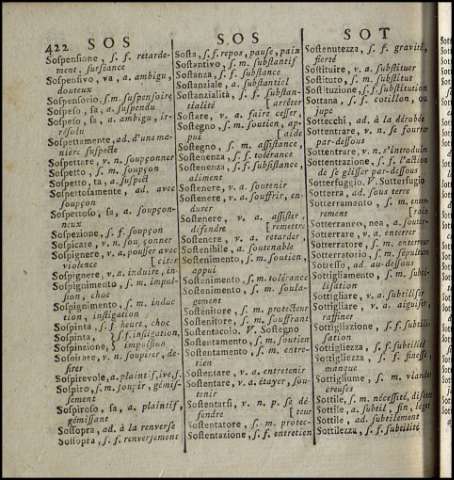 422 SOS SOS SOT
Sospensione, s. f. retarde-
ment, surséance
Sospensivo, va, a. ambigu,
douteux
Sospensorio, s. m. suspensoire
Sospeso, sa, a. suspendu
Sospeso, sa, a. ambigu, ir-
résolu
Sospettamente, ad. d'une ma-
nière suspecte
Sospettare, v. n. soupçonner
Sospetto, s. m. soupçon
Sospetto, ta, a. suspect
Sospettosamente, ad. avec
soupçon
Sospettoso, sa, a. soupçon-
neux
Sospezione, s. f. soupçon
Sospicare, v. n. soupçonner
Sospignere, v. a. pousser avec
violence [citer
Sospignere, v. a. induire, in-
Sospignimento, s. m. impul-
sion, choc
Sospignimento, s. m. induc
tion, instigation
Sospinta, s. f. heurt, choc
Sospinta, } s. f. instigation,
Sospinzione, } impulsion
Sospirare, v. n. soupirer, de-
sirer
Sospirevole, a. plaintif, ive, s.
Sospiro, s. m. soupir, gémis-
sement
Sospiroso, sa, a. plaintif,
gémissant
Sossopra, ad. à la renverse
Sossopra, s. f. renversement
Sosta, s. f. repos, pause, paix
Sostantivo, s. m. substantif
Sostanza, s. f. substance
Sostanziale, a. substantiel
Sostanzialità, s. f. substan-
tialité [arrêter
Sostare, v. a. faire cesser,
Sostegno, s. m. soutien, ap-
pui [aide
Sostegno, s. m. assistance,
Sostenenza, s. f. tolérance
Sostenenza, s. f. subsistance,
aliment
Sostenere, v. a. soutenir
Sostenere, v. a. souffrir, en-
durer
Sostenere, v. a. assister,
défendre [remettre
Sostenere, v. a. retarder,
Sostenibile, a. soutenable
Sostenimento, s. m. soutien,
appui
Sostenimento, s. m. tolérance
Sostenimento, s. m. soula-
gement
Sostenitore, s. m. protecteur
Sostenitore, s. m. souffrant
Sostentacolo, V. Sostegno
Sostentamento, s. m. soutien
Sostentamento, s. m. entre-
tien
Sostentare, v. a. entretenir
Sostentare, v. a. étayer, sou-
tenir
Sostentarsi, v. n. p. se dé-
fendre [teur
Sostentatore, s. m. protec-
Sostentazione, s. f. entretien
Sostenutezza, s. f. gravité,
fierté
Sostituire, v. a. substituer
Sostituto, s. m. substitut
Sostituzione, s. f. substitution
Sottana, s. f. cotillon, ou
jupe
Sottecchi, ad. à la dérobée
Sottentrare, v. n. se fourrer
par-dessous
Sottentrare, v. n. s'introduire
Sottentrazione, s. f. l'action
de se glisser par-dessous
Sotterfuggio, V. Sotterfugio
Sotterra, ad. sous terre
Sotterramento, s. m. enter-
rement
Sotterraneo, nea, a. souter-
Sotterrare, v. a. enterrer
Sotterratore, s. m. enterreur
Sotterratorio, s. m. sépulture
Sottesso, ad. au-dessous
Sottigliamento, s. m. subti-
lisation
Sottigliare, v. a. subtiliser
Sottigliare, v. a. aiguiser,
raffiner
Sottigliazione, s. f. subtili-
sation
Sottigliezza, s. f. subtilité
Sottigliezza, s. f. finesse,
manque
Sottigliume, s. m. viandes
creuses
Sottile, s. m. nécessité,
Sottile, a. subtil, fin, léger
Sottile, ad. subtilement
Sottilezza, s. f. subtilité